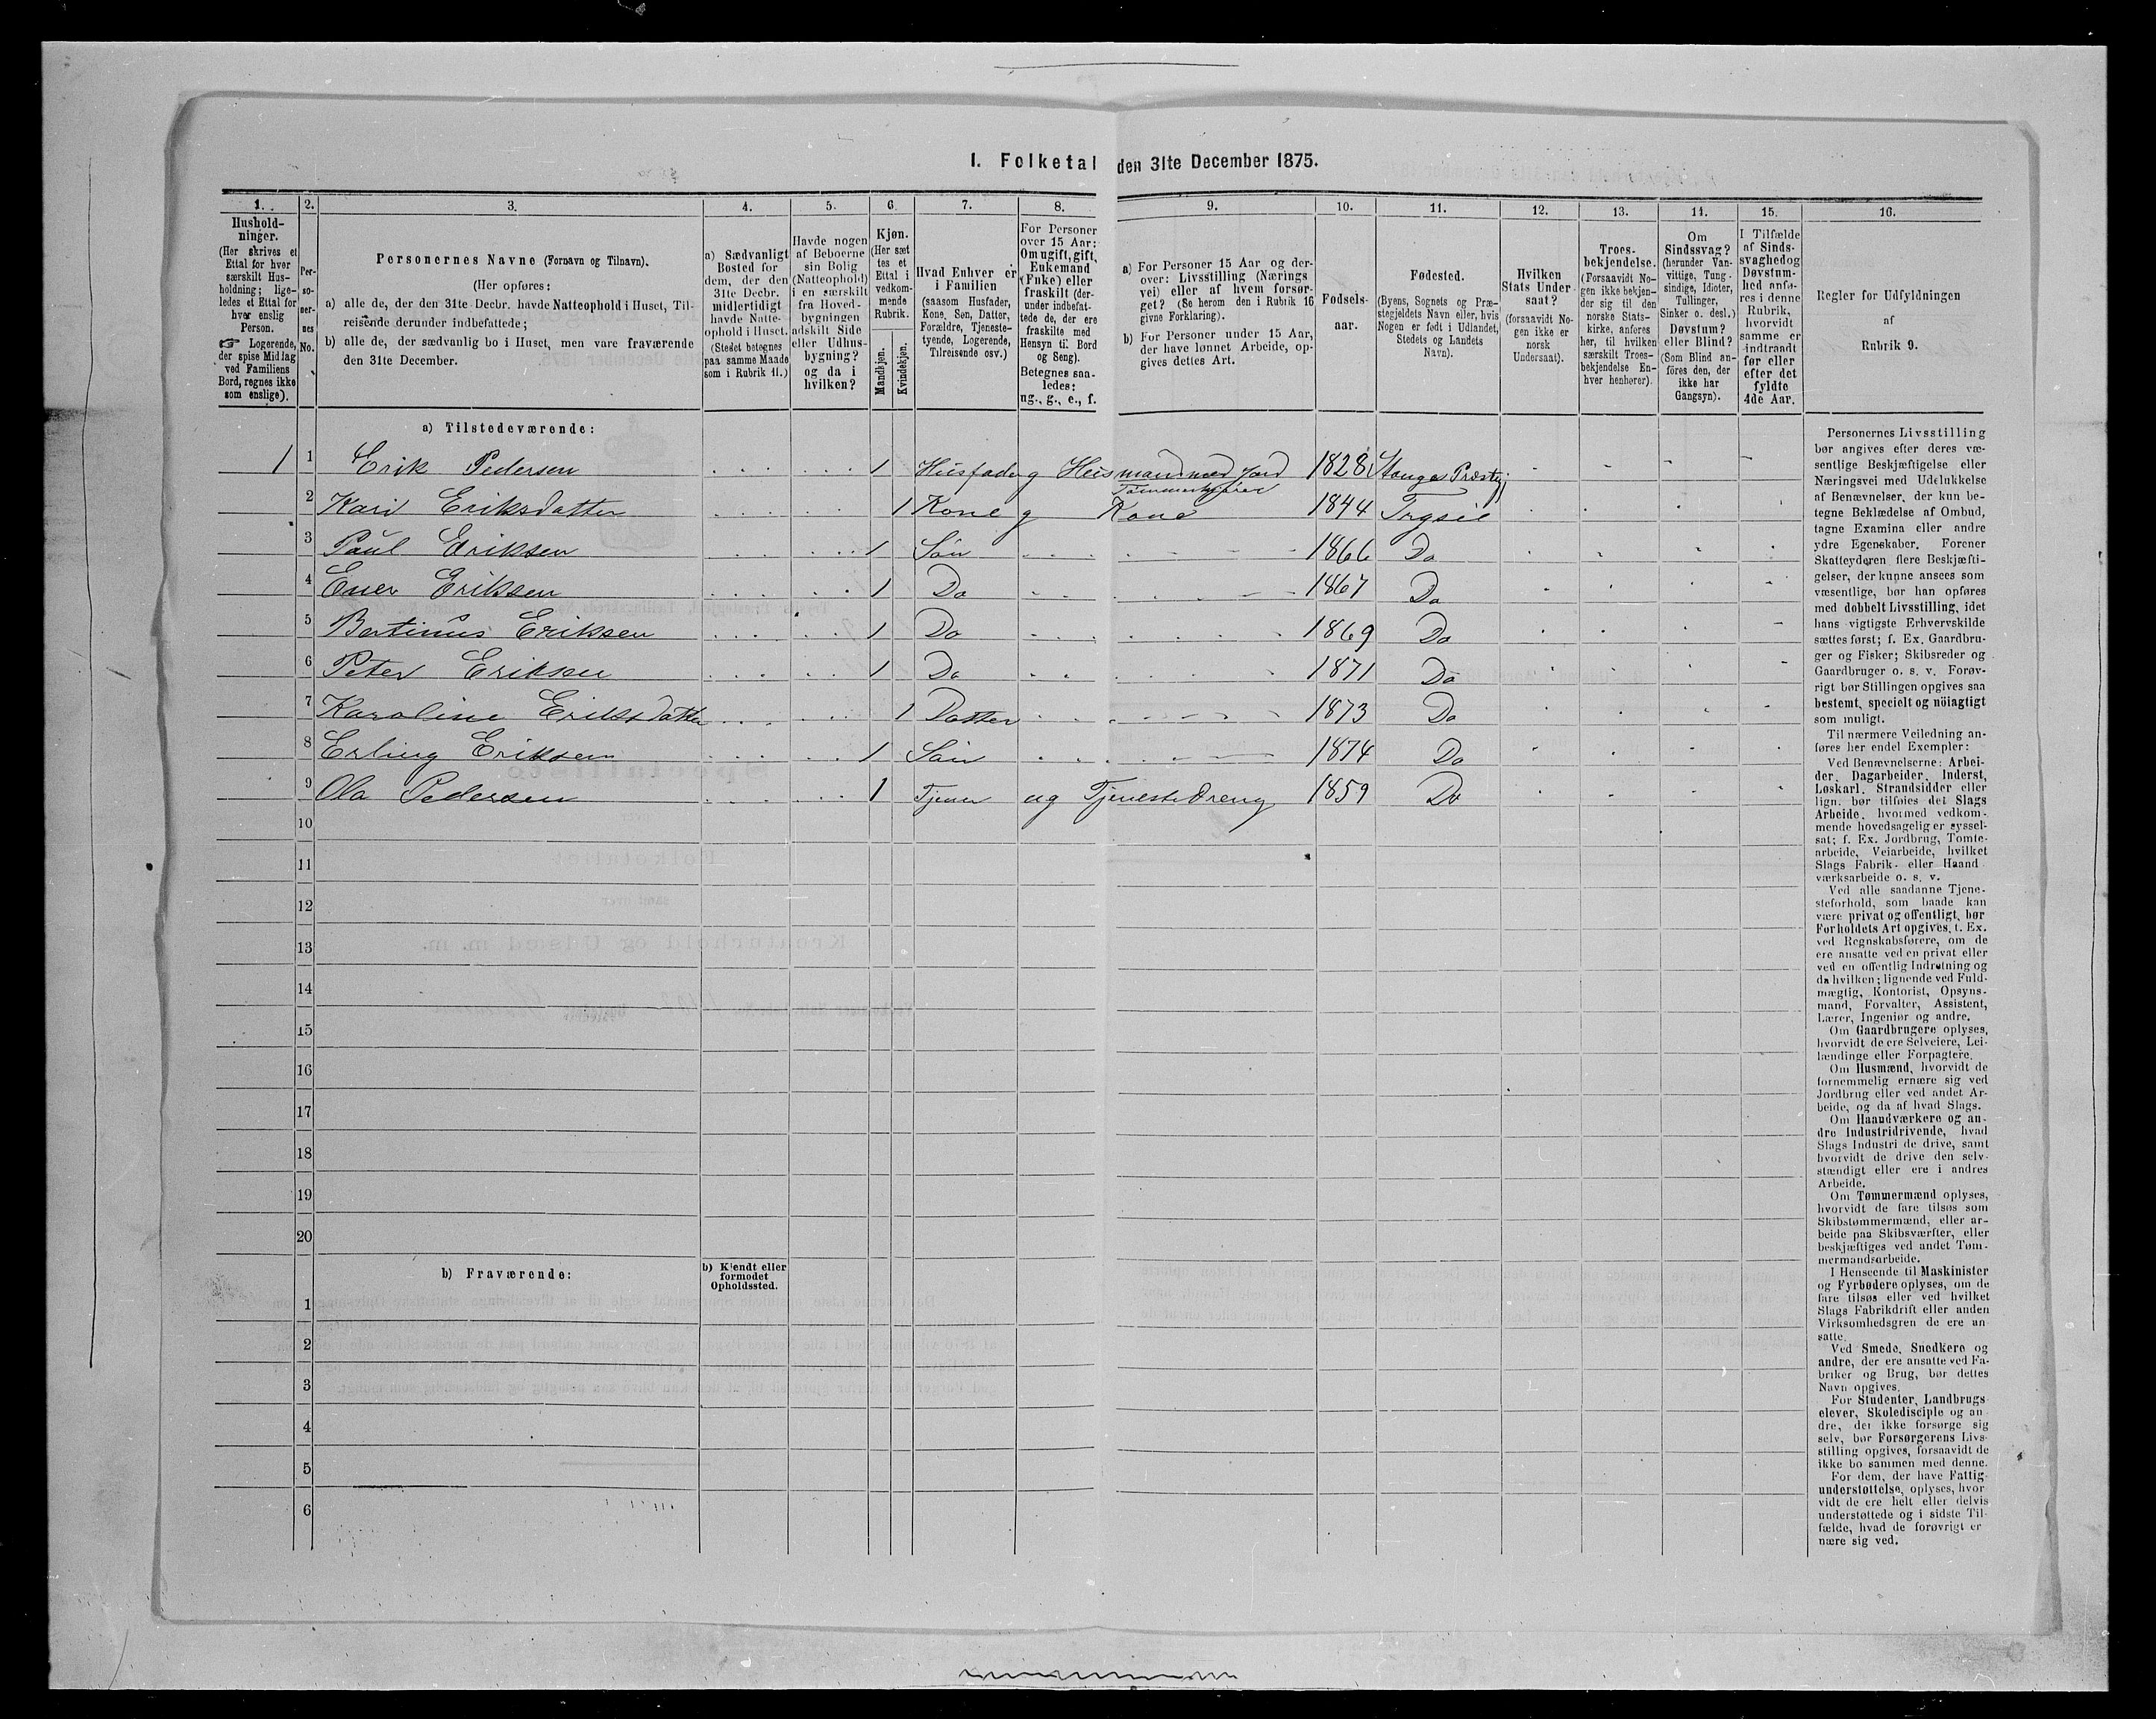 I. Folketal den 31te December 1875.
1. 2. 3. 4. 5. 6. 7. 8. 9. 10. 11. 12. 13. 14. 15. 16.
Hushold-
ninger.
(Her skrives et
Ettal for hver
særskilt Hus-
holdning; lige-
ledes et Ettal for
hver enslig
Person.
☞ Logerende,
der spise Middag
ved Familiens
Bord, regnes ikke
som enslige).
Per-
so-
ner-
nes
No.
Personernes Navne (Fornavn og Tilnavn).
(Her opføres:
a) alle de, der den 31te Decbr. havde Natteophold i Huset, Til-
reisende derunder indbefattede;
b) alle de, der sædvanlig bo i Huset, men vare fraværende
den 31te December.
a) Sædvanligt
Bosted for
dem, der den
31te Decbr.
midlertidigt
havde Natte-
ophold i Huset.
(Stedet betegnes
paa samme Maade
som i Rubrik 11.)
Havde nogen
af Beboerne
sin Bolig
(Natteophold)
i en særskilt
fra Hoved-
bygningen
adskilt Side
eller Udhus-
bygning?
og da i
hvilken?
Kjøn.
(Her sæt
tes et
Ettal i
vedkom-
mende
Rubrik.
Mandkjøn.
Kvindekjøn.
Hvad Enhver er
i Familien
(saasom Husfader,
Kone, Søn, Datter,
Forældre, Tjeneste-
tyende, Logerende,
Tilreisende osv.)
For Personer
over 15 Aar:
Om ugift, gift,
Enkemand
(Enke) eller
fraskilt (der-
under indbefat-
tede de, der ere
fraskilte med
Hensyn til Bord
og Seng).
Betegnes saa-
ledes:
ug., g., e., f.
a) For Personer 15 Aar og der-
over: Livsstilling (Nærings
vei) eller af hvem forsør-
get? (Se herom den i Rubrik 16
givne Forklaring).
b) For Personer under 15 Aar,
der have lønnet Arbeide, op-
gives dettes Art.
Fødsels-
aar.
Fødested.
(Byens, Sognets og Præ-
stegjeldets Navn eller, hvis
Nogen er født i Udlandet,
Stedets og Landets
Navn).
Hvilken
Stats Under
saat?
(forsaavidt No-
gen ikke er
norsk
Undersaat).
Troes-
bekjendelse.
(Forsaavidt No-
gen ikke bekjen-
der sig til den
norske Stats-
kirke, anføres
her, til hvilken
særskilt Troes-
bekjendelse En-
hver henhører).
Om
Sindssvag?
(herunder Van-
vittige, Tung-
sindige, Idioter,
Tullinger,
Sinker o. desl.)
Døvstum?
eller Blind?
(Som Blind an-
føres den, der
ikke har
Gangsyn).
I Tilfælde
af Sinds-
svaghed og
Døvstum-
hed anfø-
res i denne
Rubrik,
hvorvidt
samme er
indtraadt
før eller
efter det
fyldte
4de Aar.
Regler for Udfyldningen
af
Rubrik 9.
a) Tilstedeværende:
1 1 Erik Pedersen 1 Husfader g Husmand med Jord 1828 Stange Præstgj
Tømmerkjører
2 Kari Eriksdatter 1 Kone g Kone 1844 Trysil
3 Paul Eriksen 1 Søn 1866 Do
4 Ener Eriksen 1 Do 1867 Do
5 Bertinus Eriksen 1 Do 1869 Do
6 Peter Eriksen 1 Do 1871 Do
7 Karoline Eriksdatter 1 Datter 1873 Do
8 Erling Eriksen 1 Søn 1874 Do
9 Ola Pedersen 1 Tjener ug Tjenestedreng 1859 Do
10
11
12
13
14
15
16
17
18
19
20
b) Fraværende:
b) Kjendt eller
formodet
Opholdssted.
1
2
3
4
5
6
Personernes Livsstilling
bør angives efter deres væ-
sentlige Beskjæftigelse eller
Næringsvei med Udelukkelse
af Benævnelser, der kun be-
tegne Beklædelse af Ombud,
tagne Examina eller andre
ydre Egenskaber. Forener
Skatteyderen flere Beskjæfti-
gelser, der kunne ansees som
væsentlige, bør han opføres
med dobbelt Livsstilling, idet
hans vigtigste Erhvervskilde
sættes først; f. Ex. Gaardbru-
ger og Fisker; Skibsreder og
Gaardbruger o. s. v. Forøv-
rigt bør Stillingen opgives saa
bestemt, specielt og nöiagtigt
som muligt.
Til nærmere Veiledning an-
føres her endel Exempler:
Ved Benævnelserne: Arbei-
der, Dagarbeider, Inderst,
Løskarl, Strandsidder eller
lign. bør tilføies det Slags
Arbeide, hvormed vedkom-
mende hovedsagelig er syssel-
sat; f. Ex. Jordbrug, Tomte-
arbeide, Veiarbeide, hvilket
Slags Fabrik- eller Haand
værksarbeide o. s. v.
Ved alle saadanne Tjene-
steforhold, som baade kan
være privat og offentligt, bør
Forholdets Art opgives, f. Ex.
ved Regnskabsførere, om de
ere ansatte ved en privat eller
ved en offentlig Indretning og
da hvilken; lignende ved Fuld-
mægtig, Kontorist, Opsyns-
mand, Forvalter, Assistent,
Lærer, Ingeniør og andre.
Om Gaardbrugere oplyses,
hvorvidt de ere Selveiere, Lei-
lændinge eller Forpagtere.
Om Husmænd, hvorvidt de
fornemmelig ernære sig ved
Jordbrug eller ved andet Ar-
beide, og da af hvad Slags.
Om Haandværkere og an-
dre Industridrivende, hvad
Slags Industri de drive, samt
hvorvidt de drive den selv-
stændigt eller ere i andres
Arbeide.
Om Tømmermænd oplyses,
hvorvidt de fare tilsøs som
Skibstømmermænd, eller ar-
beide paa Skibsværfter, eller
beskjæftiges ved andet Tøm-
mermandsarbeide.
I Henseende til Maskinister
og Fyrbødere oplyses, om de
fare tilsøs eller ved hvilket
Slags Fabrikdrift eller anden
Virksomhedsgren de ere an
satte.
Ved Smede, Snedkere og
andre, der ere ansatte ved Fa-
briker og Brug, bør dettes
Navn opgives.
For Studenter, Landbrugs
elever, Skoledisciple og an
dre, der ikke forsørge sig
selv, bør Forsørgerens Livs-
stilling opgives, forsaavidt de
ikke bo sammen med denne.
For dem, der have Fattig-
understøttelse, oplyses, hvor
vidt de ere helt eller delvis
understøttede og i sidste Til-
fælde, hvad de forøvrigt er
nære sig ved.